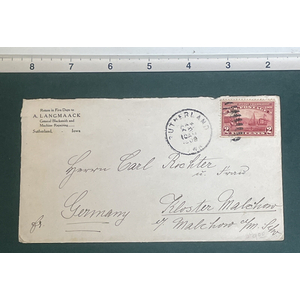 8 7 6 5 4 3 2
Return in Five Days to
A. LANGMAACK
General Blacksmith and
Machine Repairing
Sutherland, Iowa
SUTHERLAND
POSTAGE
2 2
Herrn Carl Richter
u. Frau
Germany
Kloster Malchow
Malchow